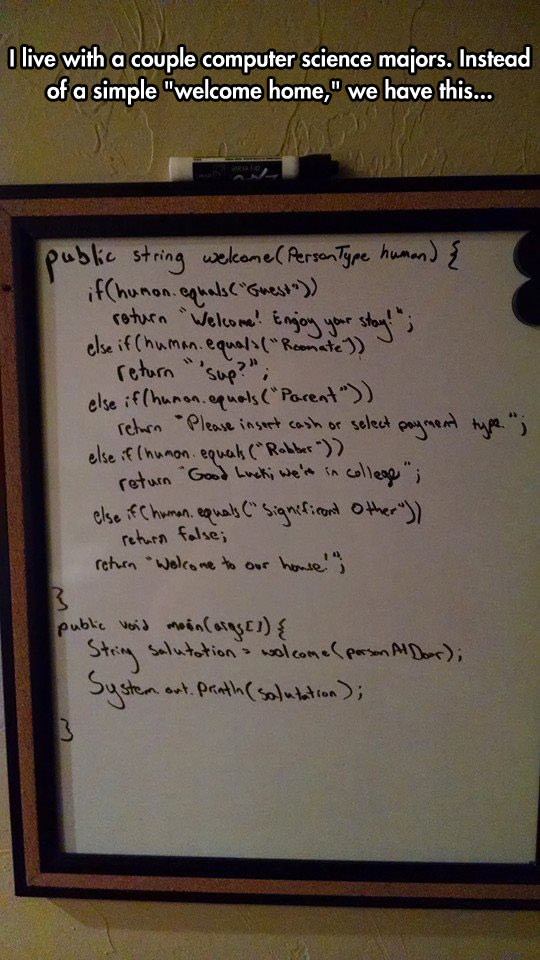 I live with a couple computer science majors. Instead
of a simple "welcome home," we have this...
public string welcome(PersonType human) {
if(human.equals("Guest"))
return "Welcome! Enjoy your stay!";
else if(human.equals("Roomate"))
return "'sup?";
else if(human.equals("Parent"))
return "Please insert cash or select payment type.";
else if(human.equals("Robber"))
return "Good Luck; we're in college";
else if(human.equals("Significant Other"))
return false;
return "Welcome to our house!";
}
public void main(args[]) {
String salutation = welcome(personAtDoor);
System.out.println(salutation);
}